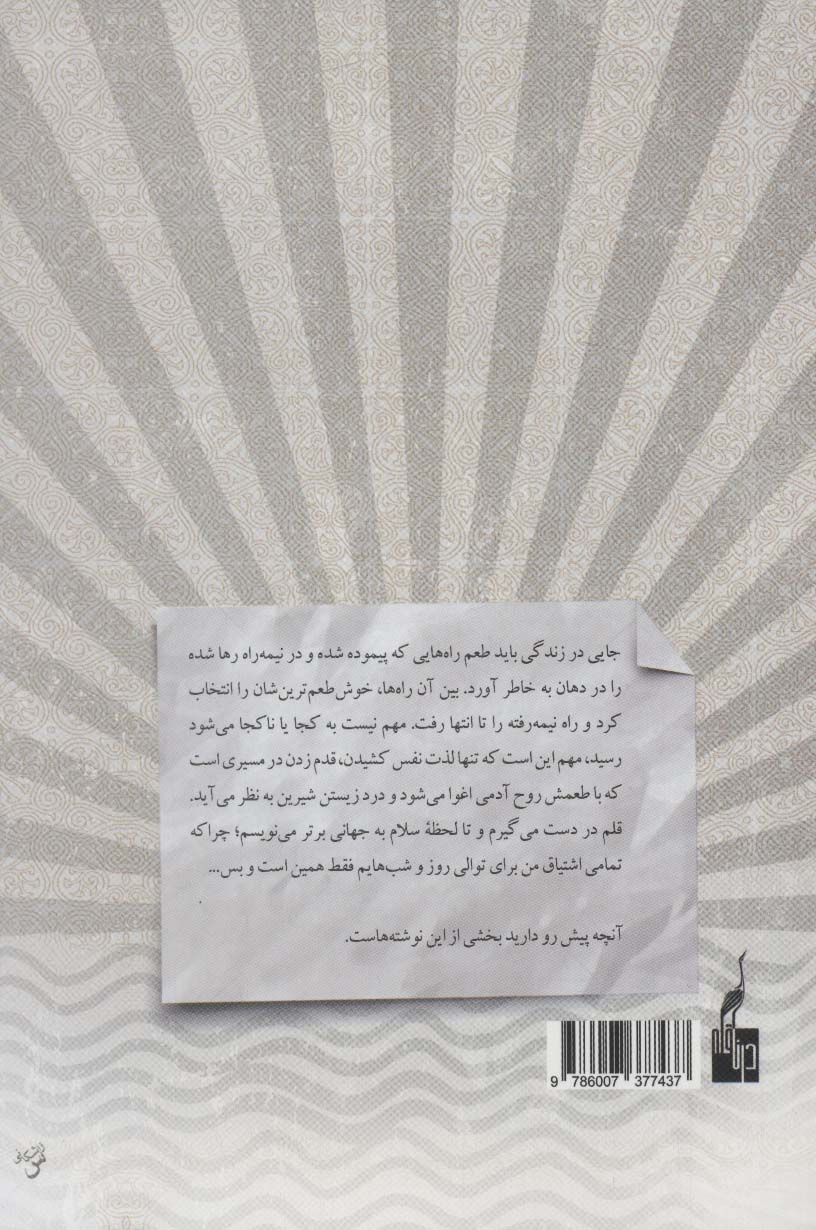 جایی در زندگی باید طعم راه‌هایی که پیموده شده و در نیمه‌راه رها شده
را در دهان به خاطر آورد. بین آن راه‌ها، خوش‌طعم‌ترین‌شان را انتخاب
کرد و راه نیمه‌رفته را تا انتها رفت. مهم نیست به کجا یا ناکجا می‌شود
رسید، مهم این است که تنها لذت نفس کشیدن، قدم زدن در مسیری است
که با طعمش روح آدمی اغوا می‌شود و درد زیستن شیرین به نظر می‌آید.
قلم در دست می‌گیرم و تا لحظهٔ سلام به جهانی برتر می‌نویسم؛ چراکه
تمامی اشتیاق من برای توالی روز و شب‌هایم فقط همین است و بس...
آنچه پیش رو دارید بخشی از این نوشته‌هاست.
9 786007 377437